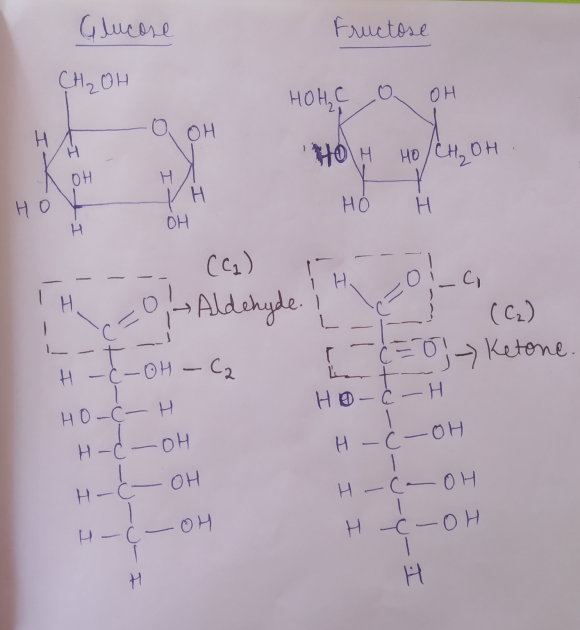 Glucose Fructose
CH₂OH
O OH
H
H
OH H
H O H
H OH
HOH₂C O OH
HO H HO CH₂OH
HO H
(C₁)
H O → Aldehyde.
C
H – C – OH – C₂
HO – C – H
H – C – OH
H – C – OH
H – C – OH
H
H O – C₁
C
(C₂)
C = O → Ketone.
HO – C – H
H – C – OH
H – C – OH
H – C – OH
H